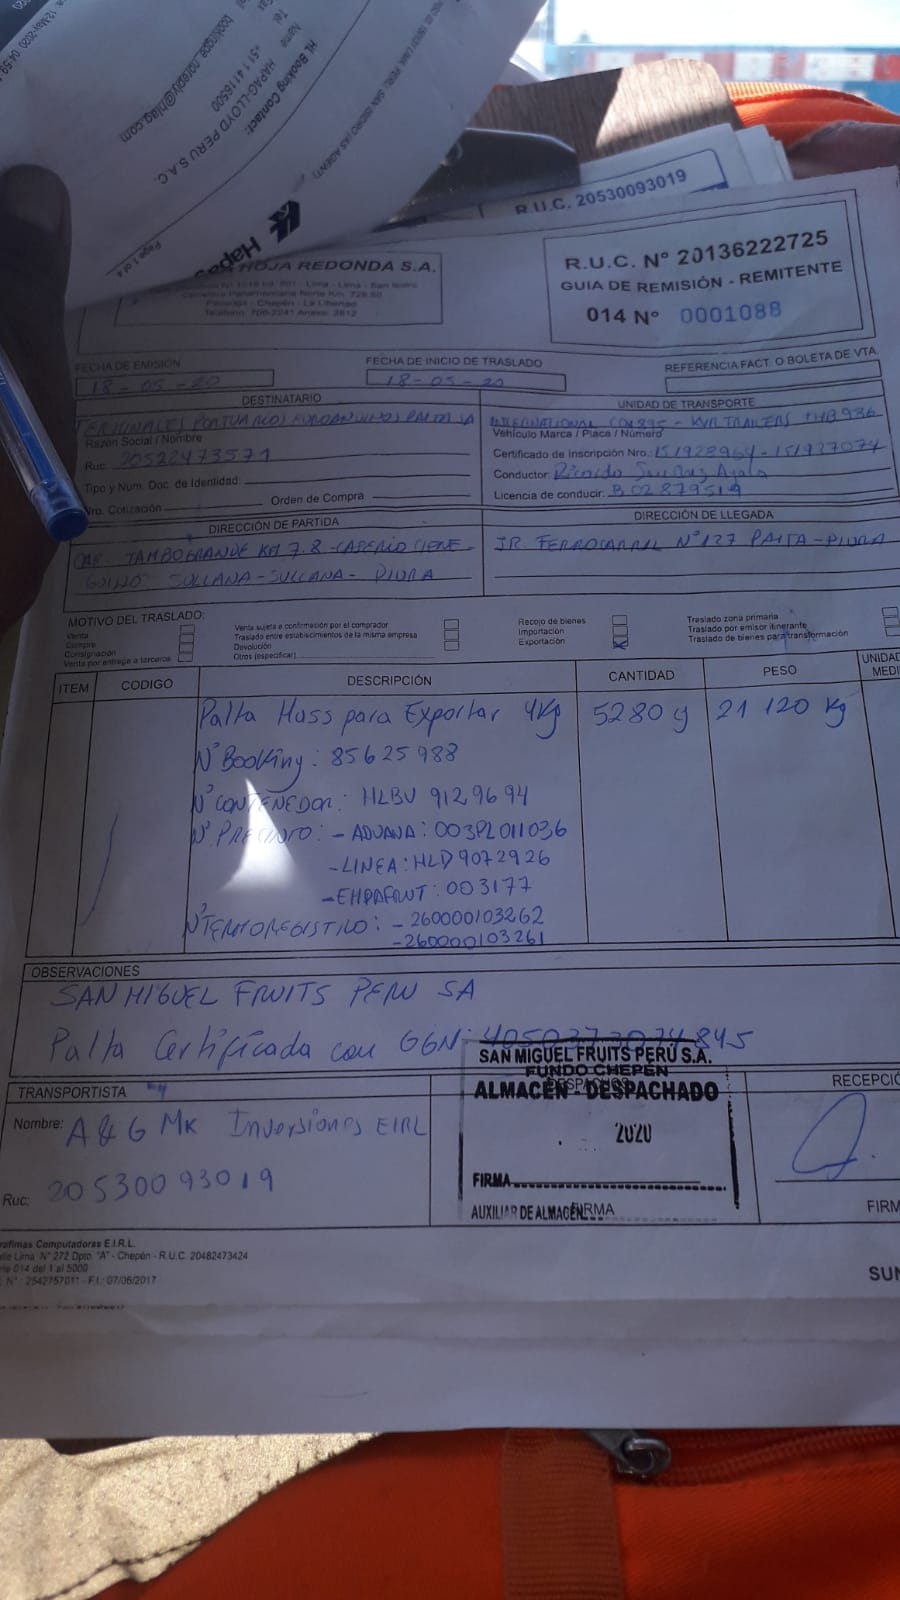 12May2020 04:59
HL Booking Contact:
HAPAG-LLOYD PERU S.A.C.
Name
Tel +51 1 4116500
Fax
bookingpe_noreply@hlag.com
LIMA, PERU, SAN ISIDRO (AS AGENT)
Page 1 of 4
R.U.C. 20530093019
HOJA REDONDA S.A.
Lima - Lima - San Isidro
Carretera Panamericana Norte Km.
- Chepén - La Libertad
R.U.C. Nº 20136222725
GUIA DE REMISIÓN - REMITENTE
014 Nº 0001088
FECHA DE EMISIÓN
18-05-20
FECHA DE INICIO DE TRASLADO
18-05-20
REFERENCIA FACT. O BOLETA DE VTA.
DESTINATARIO
TERMINALES PORTUARIOS EUROANDINOS PAITA SA
Razón Social / Nombre
Ruc: 20522473571
Tipo y Num. Doc. de Identidad:
Nro. Cotización Orden de Compra
UNIDAD DE TRANSPORTE
INTERNATIONAL
Vehículo Marca / Placa / Número
Certificado de Inscripción Nro.: 151928964-151937074
Conductor: Ricardo
Licencia de conducir: B02879519
DIRECCIÓN DE PARTIDA
CAR. TAMBOGRANDE KM 7.8 -CASERIO CIENE-
GUILLO SULLANA-SULLANA- PIURA
DIRECCIÓN DE LLEGADA
JR. FERROCARRIL Nº127 PAITA-PIURA
MOTIVO DEL TRASLADO:
Venta
Compra
Consignación
Venta por entrega a terceros
Venta sujeta a confirmación por el comprador
Traslado entre establecimientos de la misma empresa
Devolución
Otros (especificar)
Recojo de bienes
Importación
Exportación X
Traslado zona primaria
Traslado por emisor itinerante
Traslado de bienes para transformación
ITEM CODIGO DESCRIPCIÓN CANTIDAD PESO UNIDAD MEDI
Palta Hass para Exportar 4Kg 5280 21 120 Kg
N° Booking: 85625988
N° CONTENEDOR: HLBU 9129694
N° PRECINTO: - ADUANA: 003PL011036
-LINEA: HLD9072926
003177
N° TERMOREGISTRO: -260000103262
-260000103261
OBSERVACIONES
SAN MIGUEL FRUITS PERU SA
Palta Certificada con GGN: 4050373074845
SAN MIGUEL FRUITS PERÚ S.A.
FUNDO CHEPÉN
DESPACHOS
ALMACÉN - DESPACHADO
2020
FIRMA
AUXILIAR DE ALMACÉN
FIRMA
TRANSPORTISTA
Nombre: A & G MK Inversiones EIRL
Ruc: 20530093019
RECEPCIÓ
FIRM
rafimas Computadoras E.I.R.L.
lle Lima N° 272 Dpto. "A" - Chepén - R.U.C. 20482473424
rie 014 del 1 al 5000
N° : 2542757011 - F.I.: 07/06/2017
SUN